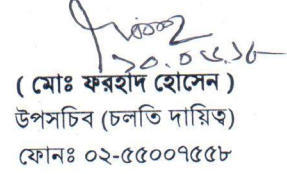 ১০.০৫.১৮
( মোঃ ফরহাদ হোসেন )
উপসচিব (চলতি দায়িত্ব)
ফোনঃ ০২-৫৫০০৭৫৫৮